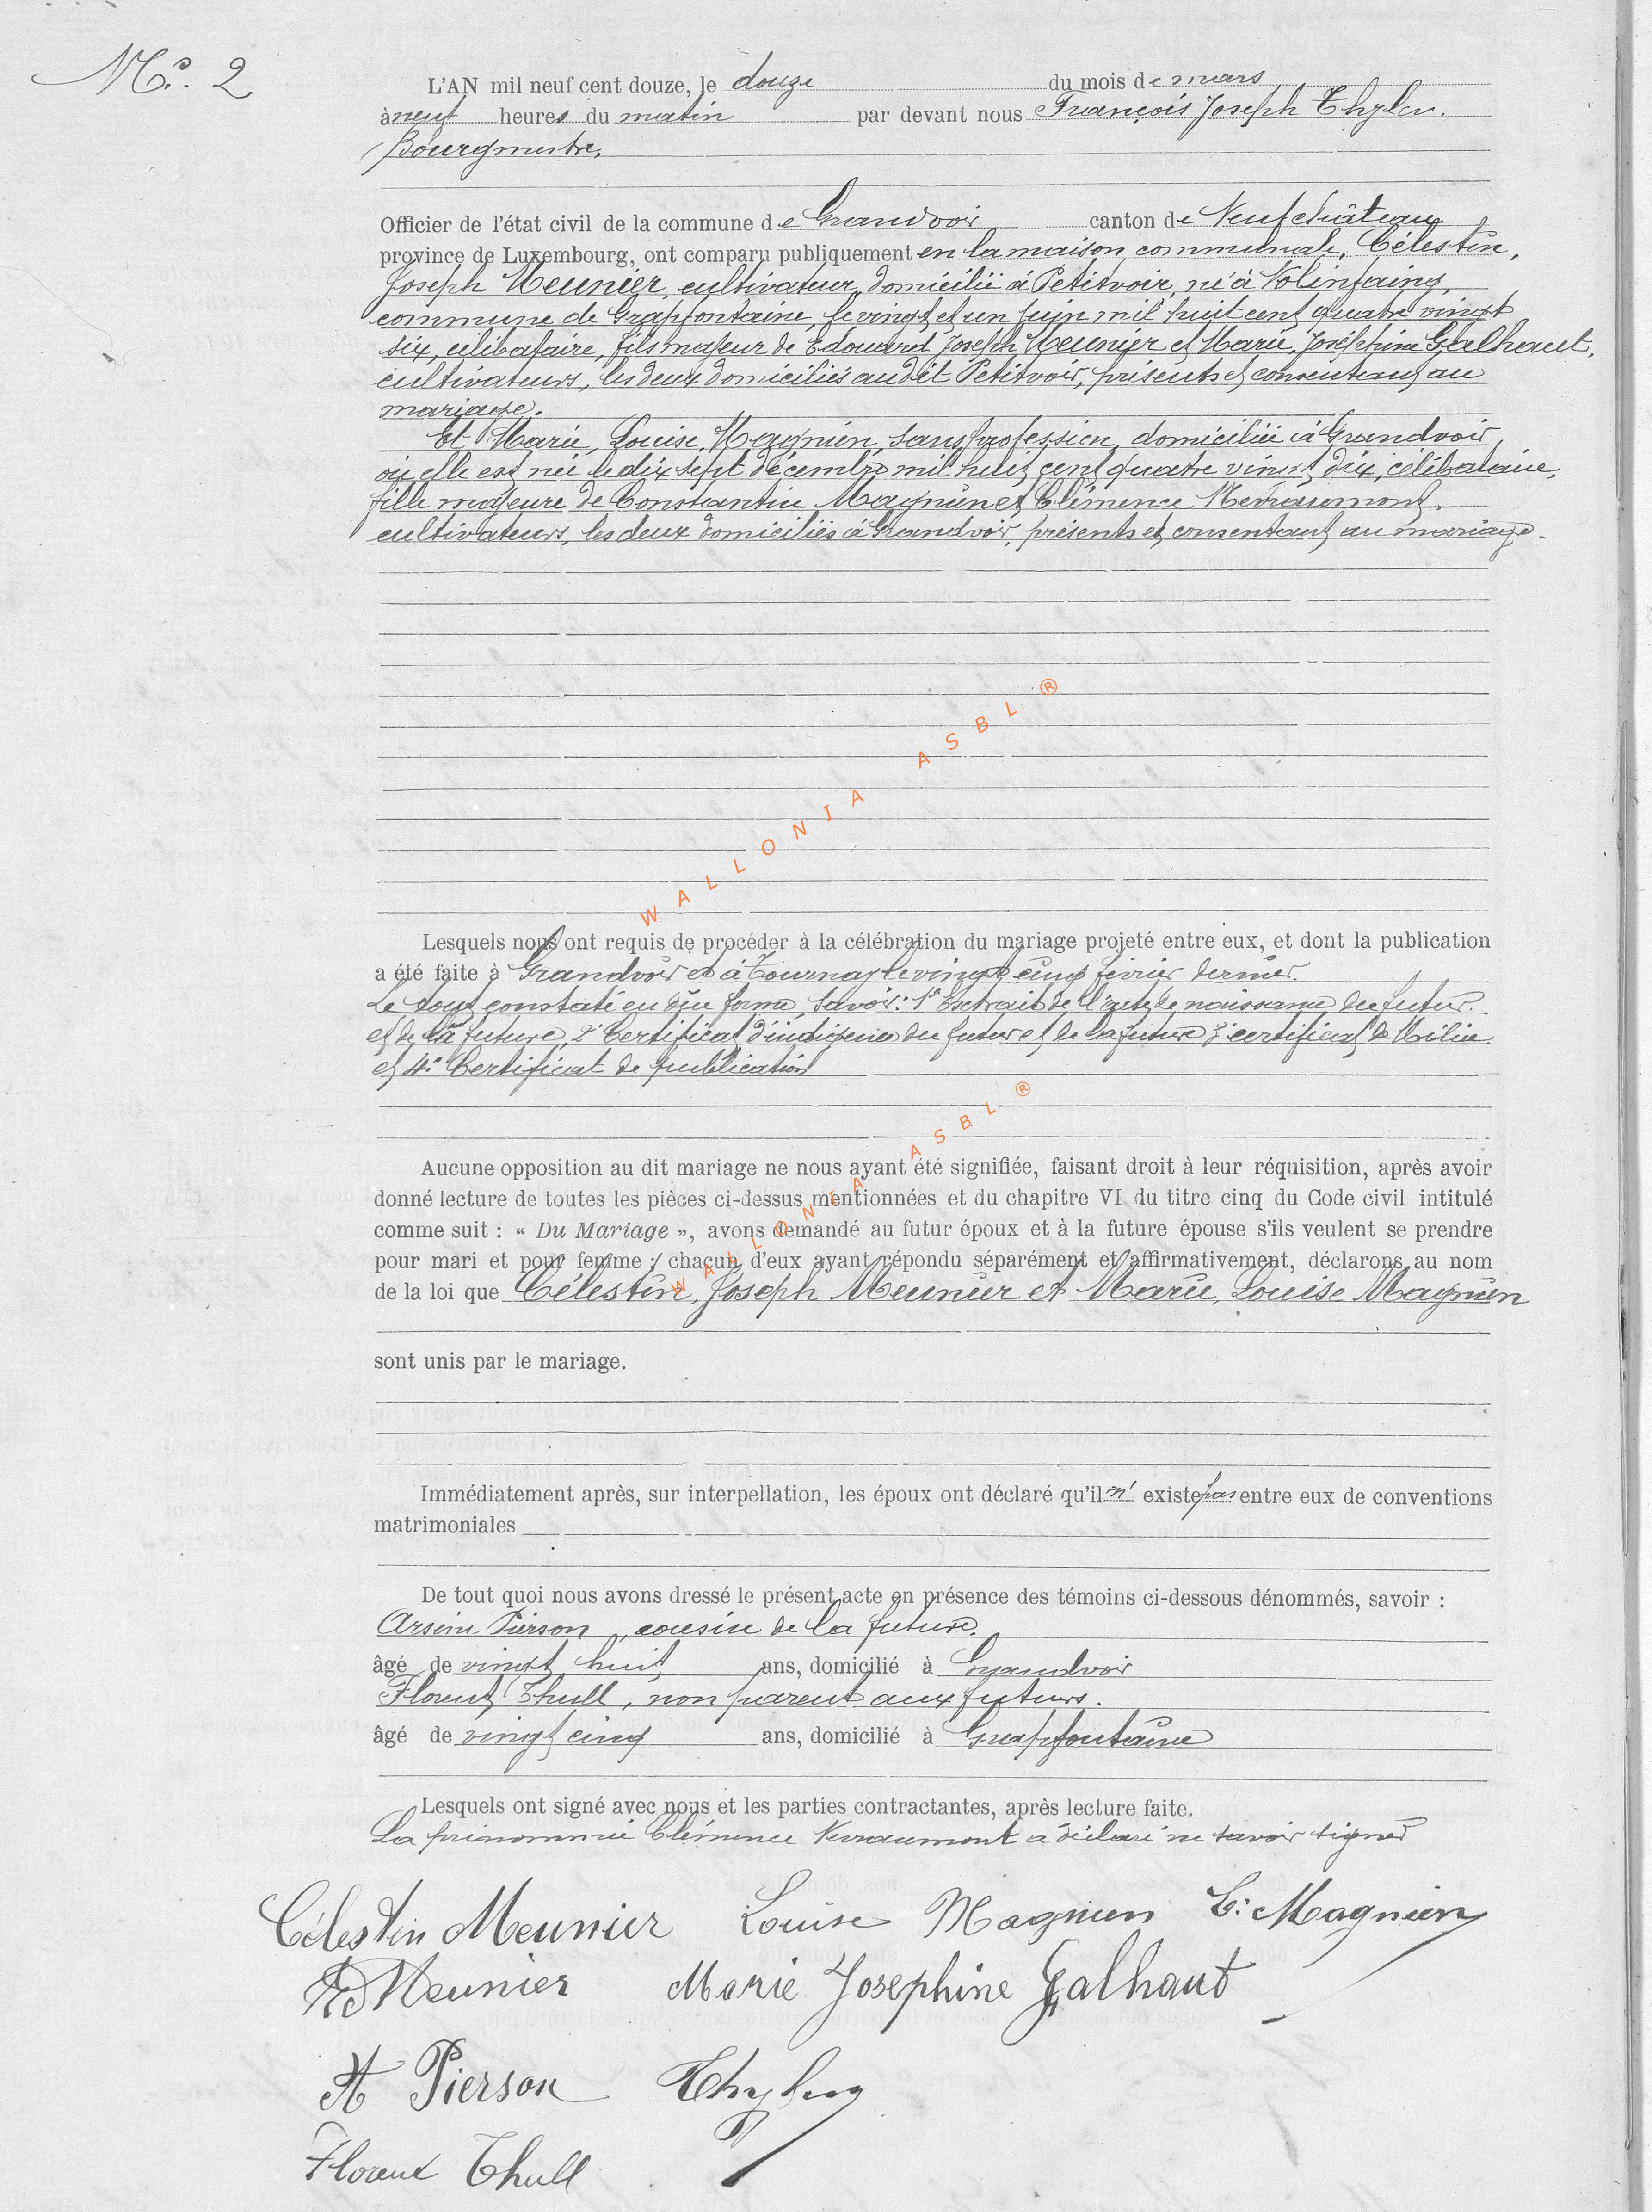 No. 2
L'AN mil neuf cent douze, le douze du mois de mars
à neuf heures du matin par devant nous François Joseph
Bourgmestre,
Officier de l'état civil de la commune de Grandvoir canton de Neufchâteau
province de Luxembourg, ont comparu publiquement en la maison communale, Célestin,
Joseph Meunier, cultivateur, domicilié à Petitvoir, né à Nolinfaing,
commune de Grapfontaine, le vingt et un juin mil huit cent quatre vingt
six, célibataire, fils majeur de Edouard Joseph Meunier et Marie, Joséphine Galhaut,
cultivateurs, les deux domiciliés audit Petitvoir, présents et consentant au
mariage.
Et Marie, Louise, Magnien, sans profession, domiciliée à Grandvoir,
où elle est née le dix sept décembre mil huit cent quatre vingt dix, célibataire,
fille majeure de Constantin Magnien et Clémence
cultivateurs, les deux domiciliés à Grandvoir, présents et consentant au mariage.
Lesquels nous ont requis de procéder à la célébration du mariage projeté entre eux, et dont la publication
a été faite à Grandvoir et à Tournay le vingt cinq février dernier.
Le tout constaté en due forme, savoir: 1° Extrait de l'acte de naissance du futur
et de la future, 2° Certificat d'indigence du futur et de la future 3° certificat de Milice
et 4° Certificat de publication
Aucune opposition au dit mariage ne nous ayant été signifiée, faisant droit à leur réquisition, après avoir
donné lecture de toutes les pièces ci-dessus mentionnées et du chapitre VI du titre cinq du Code civil intitulé
comme suit : « Du Mariage », avons demandé au futur époux et à la future épouse s'ils veulent se prendre
pour mari et pour femme ; chacun d'eux ayant répondu séparément et affirmativement, déclarons au nom
de la loi que Célestin, Joseph Meunier et Marie, Louise Magnien
sont unis par le mariage.
Immédiatement après, sur interpellation, les époux ont déclaré qu'il n' existe pas entre eux de conventions
matrimoniales
De tout quoi nous avons dressé le présent acte en présence des témoins ci-dessous dénommés, savoir :
Arsène Pierson, cousin de la future.
âgé de vingt huit ans, domicilié à Grandvoir
Florent Thull, non parent aux futurs.
âgé de vingt cinq ans, domicilié à Grapfontaine
Lesquels ont signé avec nous et les parties contractantes, après lecture faite.
La prénommée Clémence a déclaré ne savoir signer
Célestin Meunier Louise Magnien C: Magnien
Ed Meunier Marie Josephine Galhaut
A Pierson
Florent Thull
WALLONIA ASBL ®
WALLONIA ASBL ®